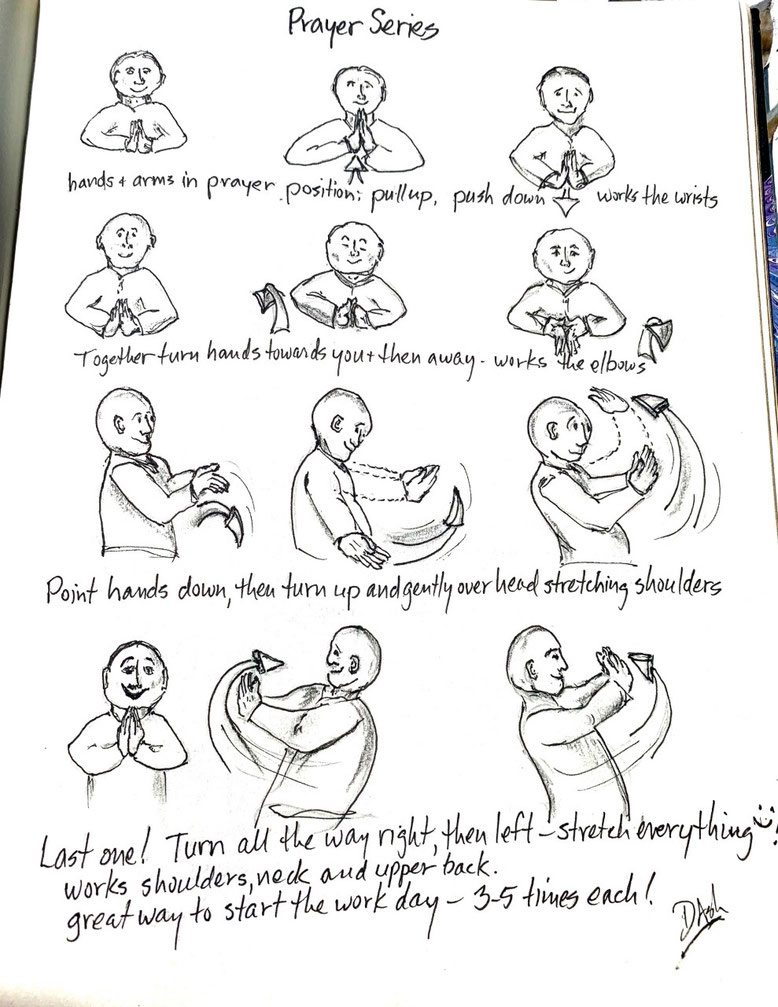 Prayer Series
hands + arms in prayer position; pull up, push down works the wrists
Together turn hands towards you + then away - works the elbows
Point hands down, then turn up and gently over head stretching shoulders
Last one! Turn all the way right, then left - stretch everything!
works shoulders, neck and upper back.
great way to start the work day - 3-5 times each!
DAsh